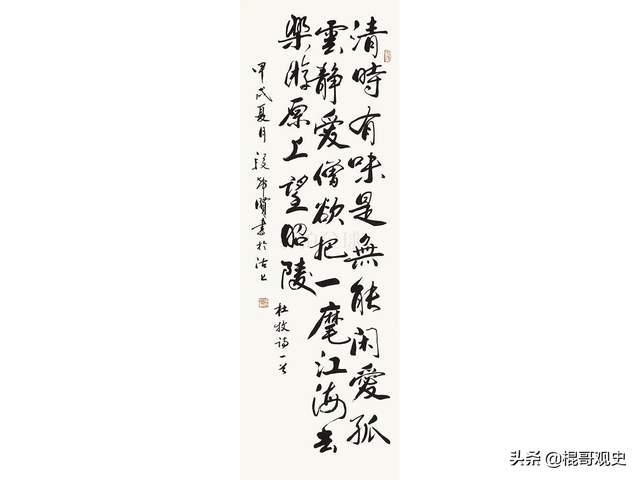 清時有味是無能闲愛孤
雲静愛僧欲把一麾江海去
樂游原上望昭陵
杜牧詩一首
甲戌夏月書於沽上
头条 @棍哥观史